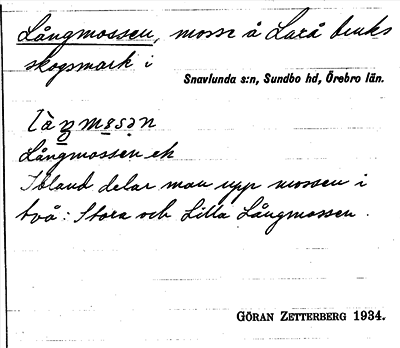 Långmossen, mosse å Laxå bruks
skogsmark i
Snavlunda s:n, Sundbo hd, Örebro län.
Långmossen ek
Ibland delar man upp mossen i
två: Stora och Lilla Långmossen.
GÖRAN ZETTERBERG 1934.